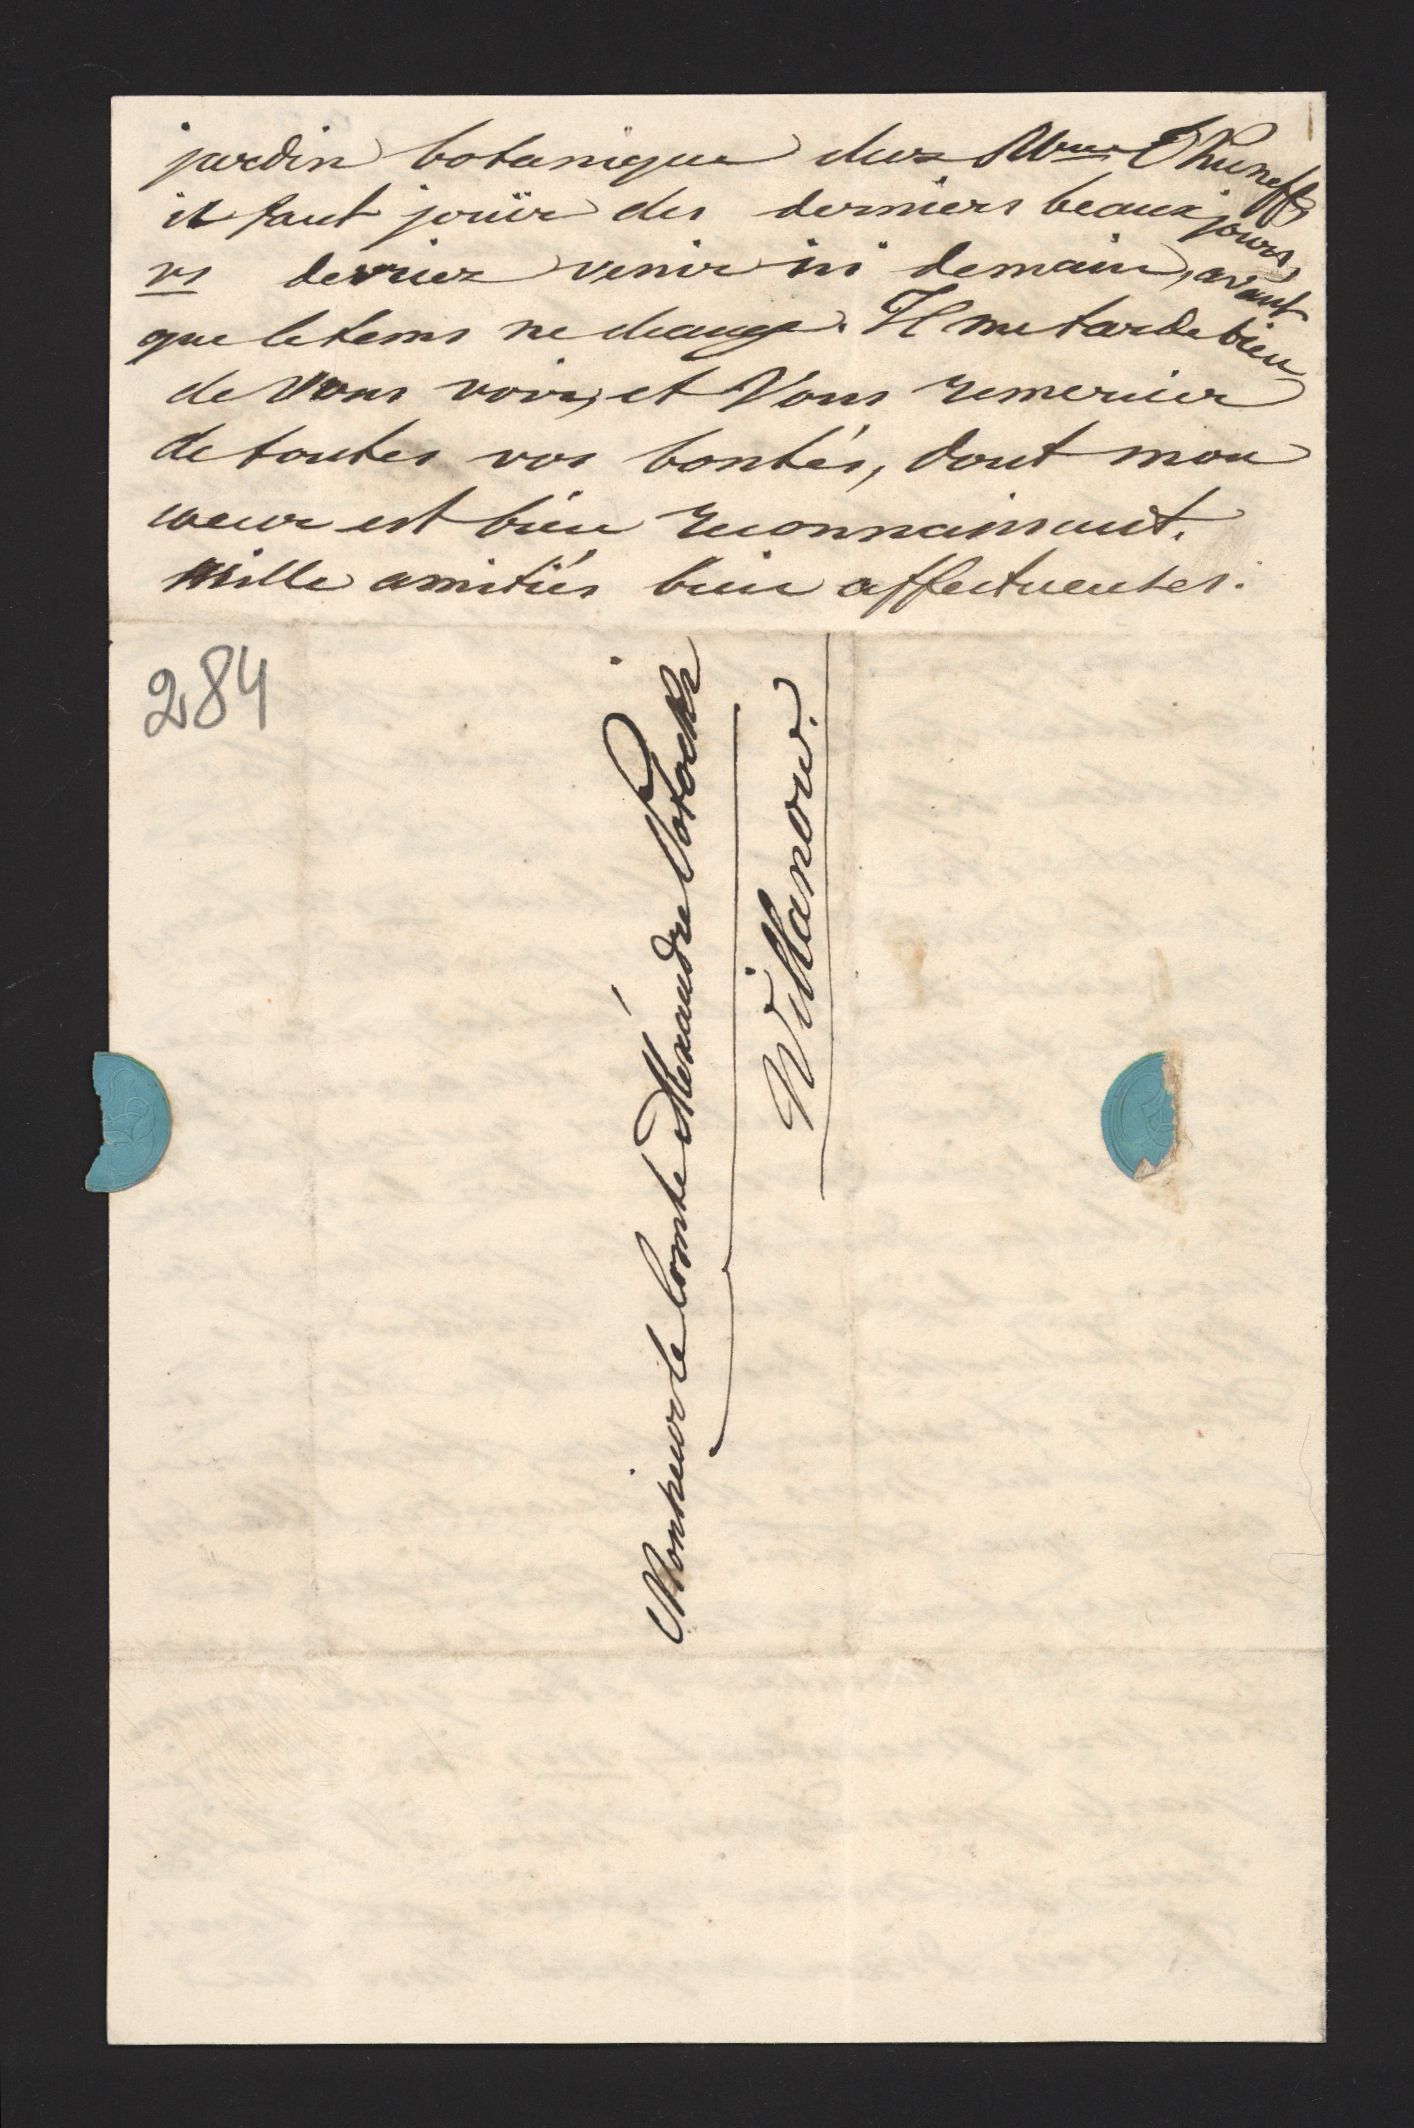 jardin botanique chez Mme
il faut jouïr des derniers beaux jours,
vs devriez venir ici demain, avant
que le tems ne change. Il me tarde bien
de Vous voir, et Vous remercier
de toutes vos bontés, dont mon
cœur est bien reconnaissant.
Mille amitiés bien affectueuses.
284
Monsieur le Comte Alexandre Potocki
à
Willanow.